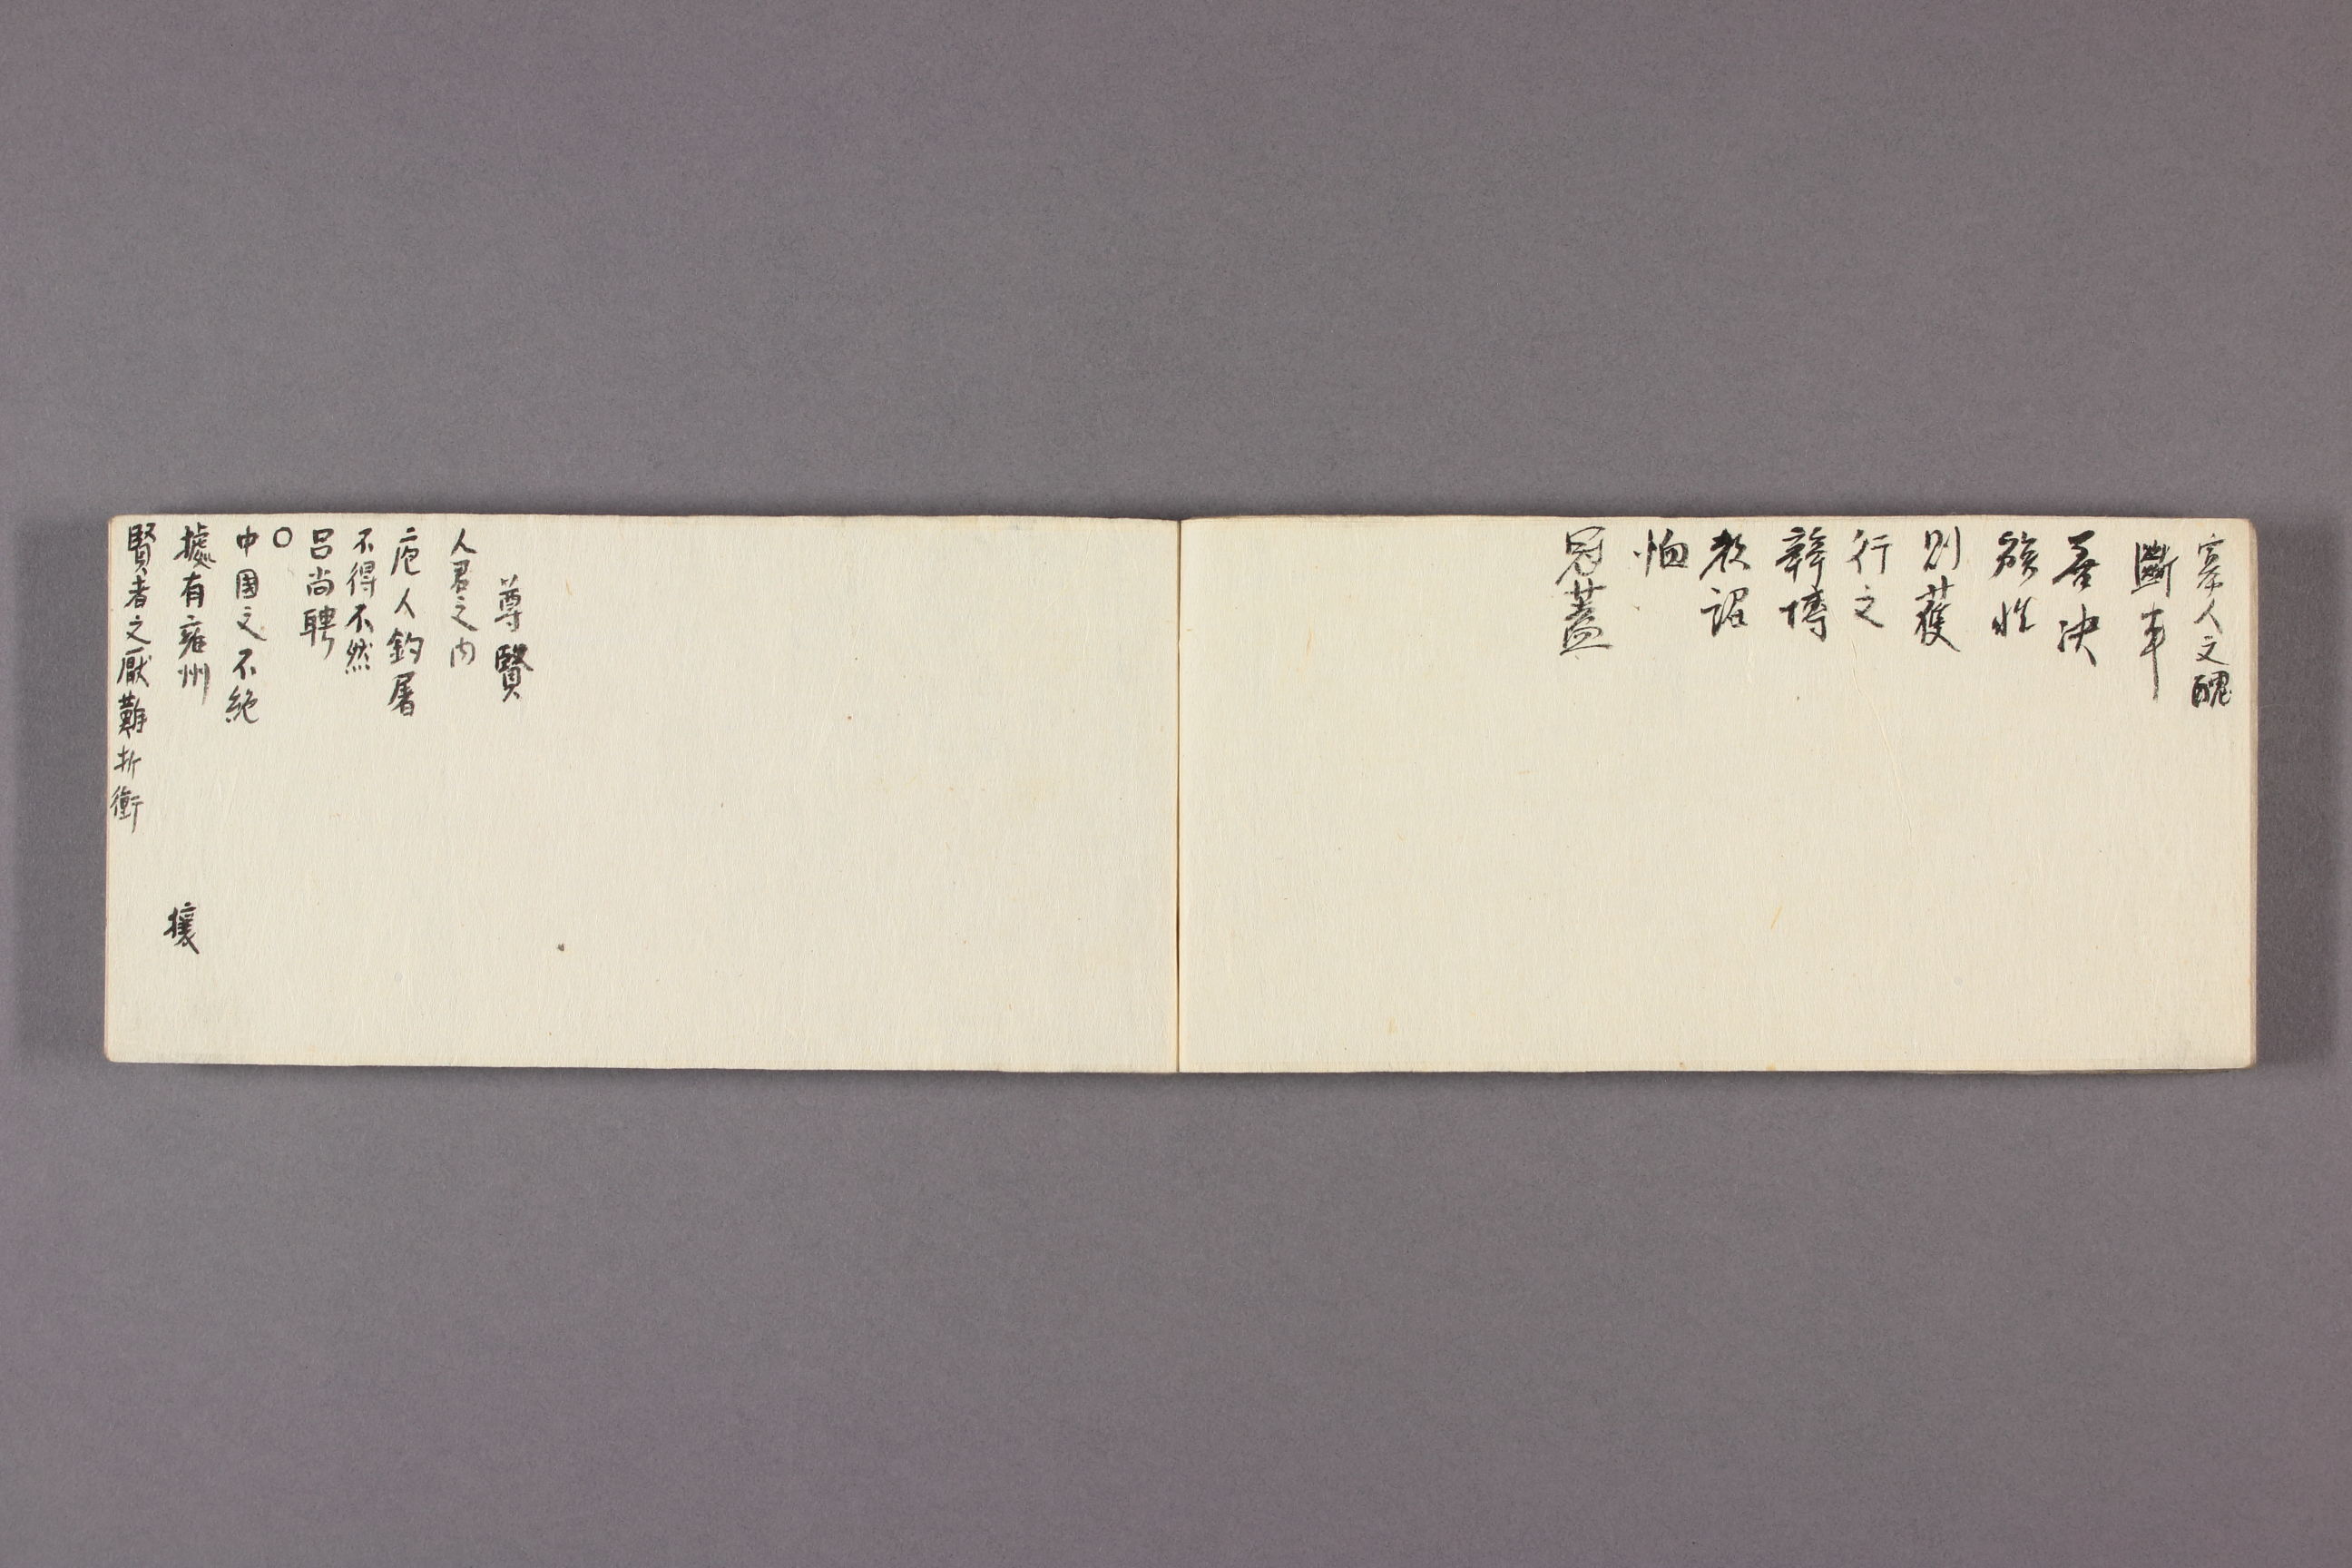 寡人之醜
斷事
吾決
餘性
則獲
行之
辭博
教詔
怕
冠蓋
尊賢
人君之内
庖人釣屠
不得不然
呂尚聘
○
中國之不絶
據有雍州
攘
賢者之厭難折衝